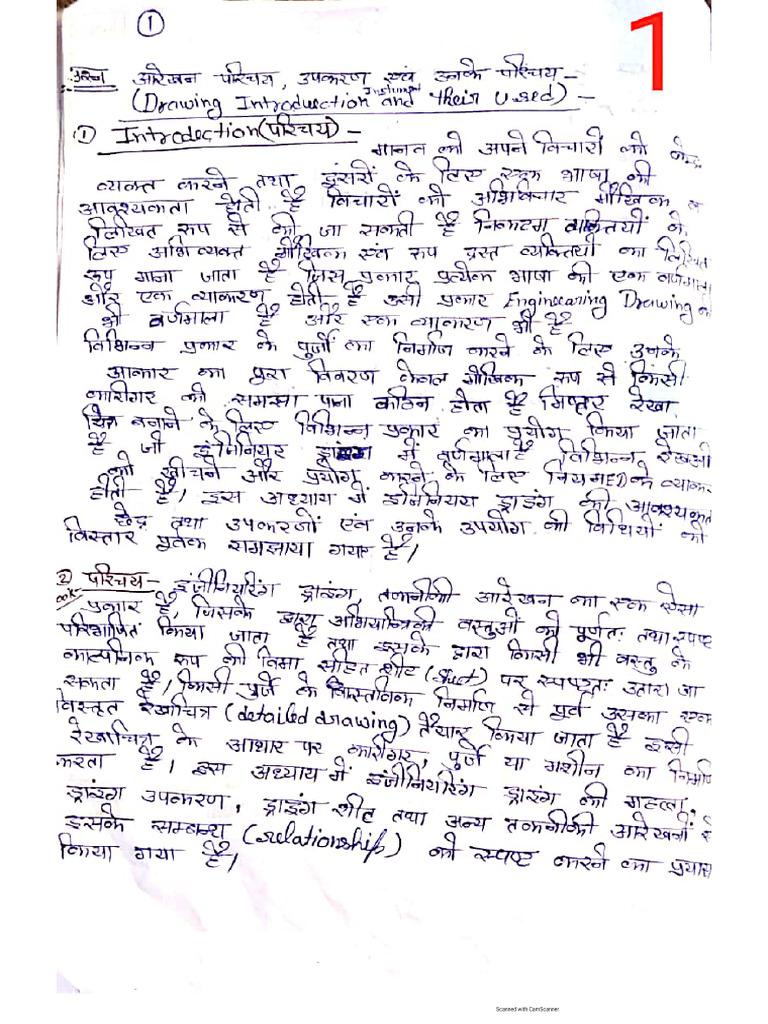 ①
1
प्रश्न आरेखन परिचय, उपकरण एवं उनके परिचय -
(Drawing Introduction Instument and their used) -
① Introdection (परिचय) -
मानव को अपने विचारों को
व्यक्त करने तथा दूसरों के लिए एक भाषा की
आवश्यकता होती है विचारों को मौखिक
लिखित रूप से की जा सकती है निकटतम व्यक्तियों के
लिए अभिव्यक्त मौखिक एवं रूप व्यक्तियों का लिखित
रूप माना जाता है जिस प्रकार प्रत्येक भाषा की एक वर्णमाला
और एक व्याकरण होती है उसी प्रकार Engineering Drawing की
भी वर्णमाला है और एक व्याकरण भी है
विभिन्न प्रकार के पुर्जो का निर्माण करने के लिए उनके
आकार का पुरा विवरण केवल मौखिक रूप से किसी
कारीगर को समझा पाना कठिन होता है रेखा
चित्र बनाने के लिए विभिन्न प्रकार का प्रयोग किया जाता
है जो इंजिनियर ड्राइंग में वर्णमाला है विभिन्न रेखाओ
को खीचने और प्रयोग करने के लिए नियम के व्याक
होती है। इस अध्याय में ड्राइंग की आवश्यकत
तथा उपकरणों एवं उनके उपयोग की विधियों को
विस्तार पूर्वक समझाया गया है।
② परिचय - इंजीनियरिंग ड्राइंग, तकनीकी आरेखन का एक ऐसा
प्रकार है, जिसके द्वारा अभियान्त्रिकी वस्तुओ को पूर्णतः तथा स्पष्ट
परिभाषित किया जाता है तथा इसके द्वारा किसी भी वस्तु के
काल्पनिक रूप को विमा सहित शीट पर स्पष्टतः उतारा जा
सकता है। किसी पुर्जे के वास्तविक निर्माण से पूर्व उसका एक
विस्तृत रेखाचित्र (detailed drawing) तैयार किया जाता है इसी
रेखाचित्र के आधार पर कारीगर, पुर्जे या मशीन का निर्माण
करता है। इस अध्याय में इंजीनियरिंग ड्राइंग की महत्ता,
ड्राइंग उपकरण, ड्राइंग शीट तथा अन्य तकनीकी आरेखनों से
इसके सम्बन्ध (relationship) को स्पष्ट करने का प्रयास
किया गया है।
Scanned with CamScanner